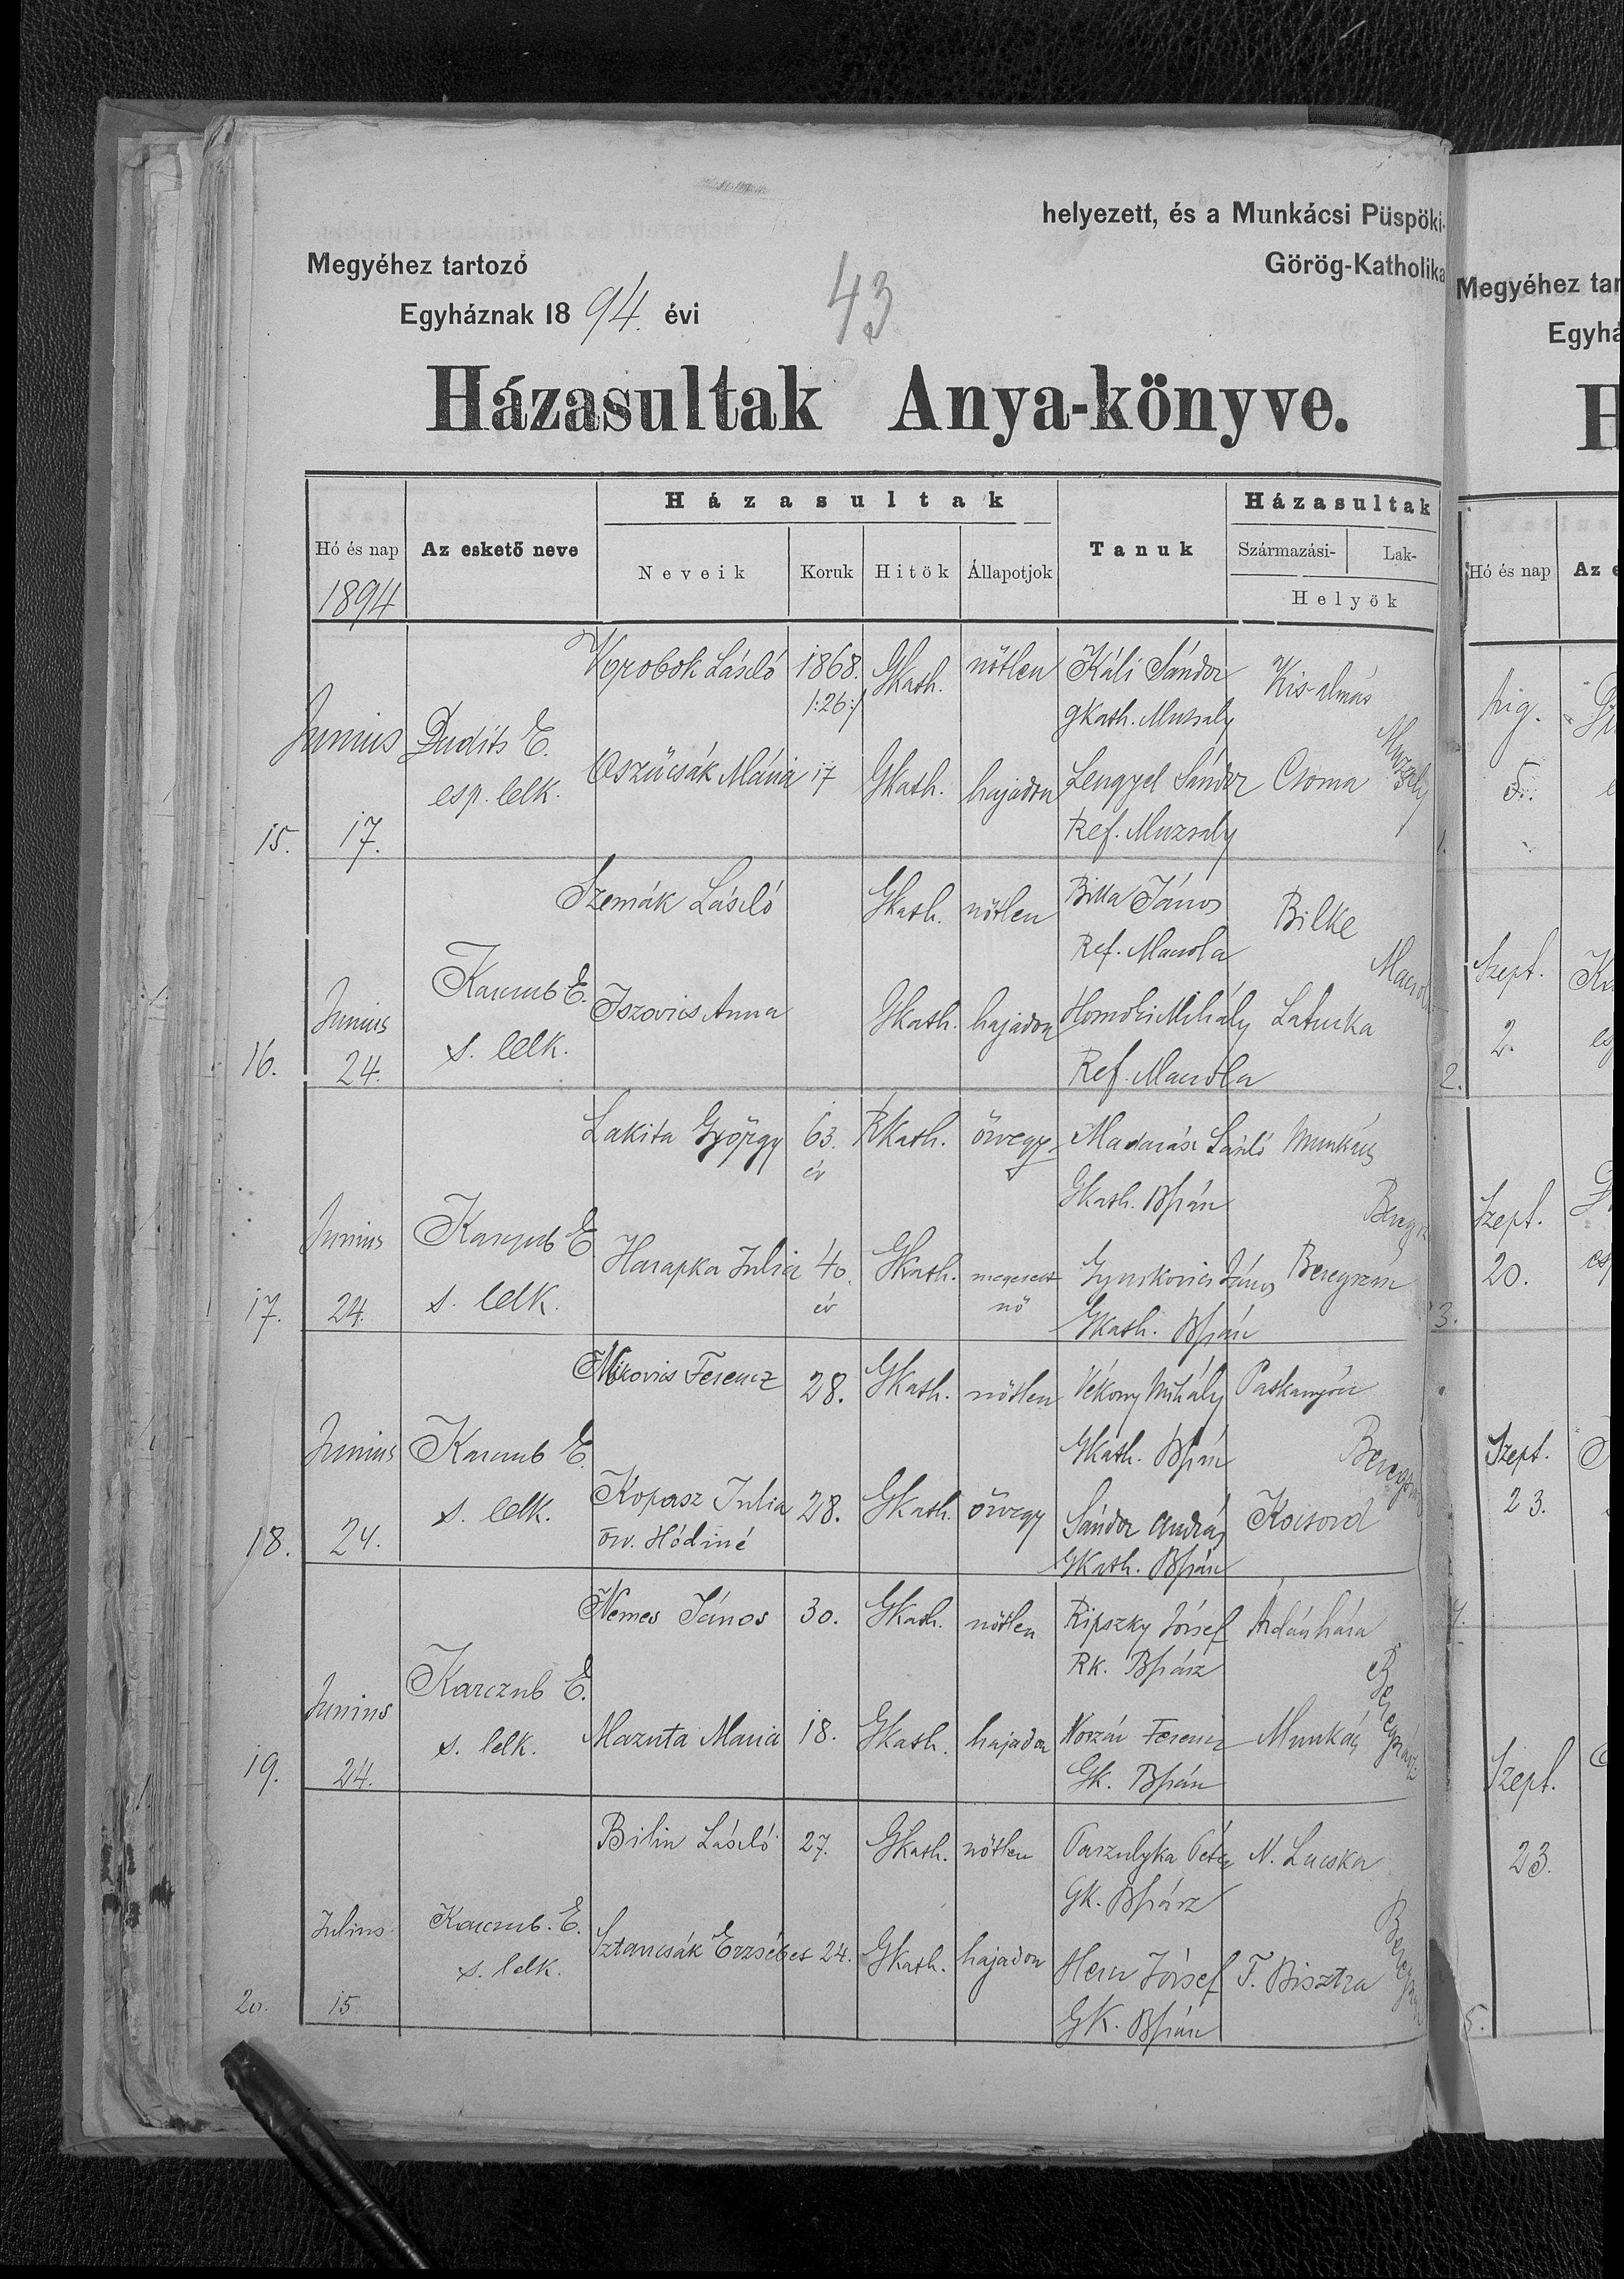 helyezett, és a Munkácsi Püspöki-
Megyéhez tartozó
Görög-Katholika
Egyháznak 1894. évi
43
Házasultak Anya-könyve.
Házasultak
Házasultak
Hó és nap
Az eskető neve
Neveik
Koruk
Hitök
Állapotjok
Tanuk
Származási-
Lak-
Helyök
1894
László 1868. Gkath. nőtlen Káli Sándor Kis-almás
/:26:/ gkath. Muzsaly
Junius Dudits E. Muzsaly
Oszücsák Mária 17 Gkath. hajadon Lengyel Sándor Csoma
esp. lelk.
15. 17. Ref. Muzsaly
Szemák László Gkath. nőtlen János Bilke
Ref. Macsola
Karczub E. Macsola
Junius Iszovics Anna Gkath. hajadon Homoki Mihály Laturka
s. lelk.
16. 24. Ref. Macsola
Lakita György 63. év Rkath. özvegy Madarász László Munkács
Gkath. Bszász
Junius Karczub E. Beregsz
Harapka Julia 40. év Gkath. megesett nő János Beregszász
17. 24. s. lelk. Gkath. Bszász
Mikovics Ferencz 28. Gkath. nőtlen Vékony Mihály
Gkath. Bszász
Junius Karczub E. Beregszász
s. lelk. Kopasz Julia 28. Gkath. özvegy Sándor András Kovsord
18. 24. özv. Hódiné Gkath. Bszász
Nemes János 30. Gkath. nőtlen Ripszky József Ardánháza
Rk. Bszász
Karczub E. Beregszász
Junius s. lelk. Mazuta Maria 18. Gkath. hajadon Ferencz Munkács
19. 24. Gk. Bszász
Bilin László 27. Gkath. nőtlen Paszulyka Péter N. Lucska
Gk. Bszász
Julius Karczub. E. Beregszász
s. lelk. Sztancsák Erzsébet 24. Gkath. hajadon József T. Bisztra
20. 15. Gk. Bszász
Megyéhez tar
Egyhá
H
Hó és nap
Az e
Aug.
5.
1.
Szept.
2.
2.
Szept.
20.
3.
Szept.
23.
4.
Szept.
23.
5.